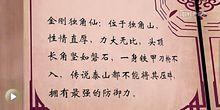 金刚独角仙：位于独角山，
性情直厚，力大无比，头顶
长角坚如磐石，一身铁甲刀枪不
入，传说泰山都不能将其压碎，
拥有最强的防御力。